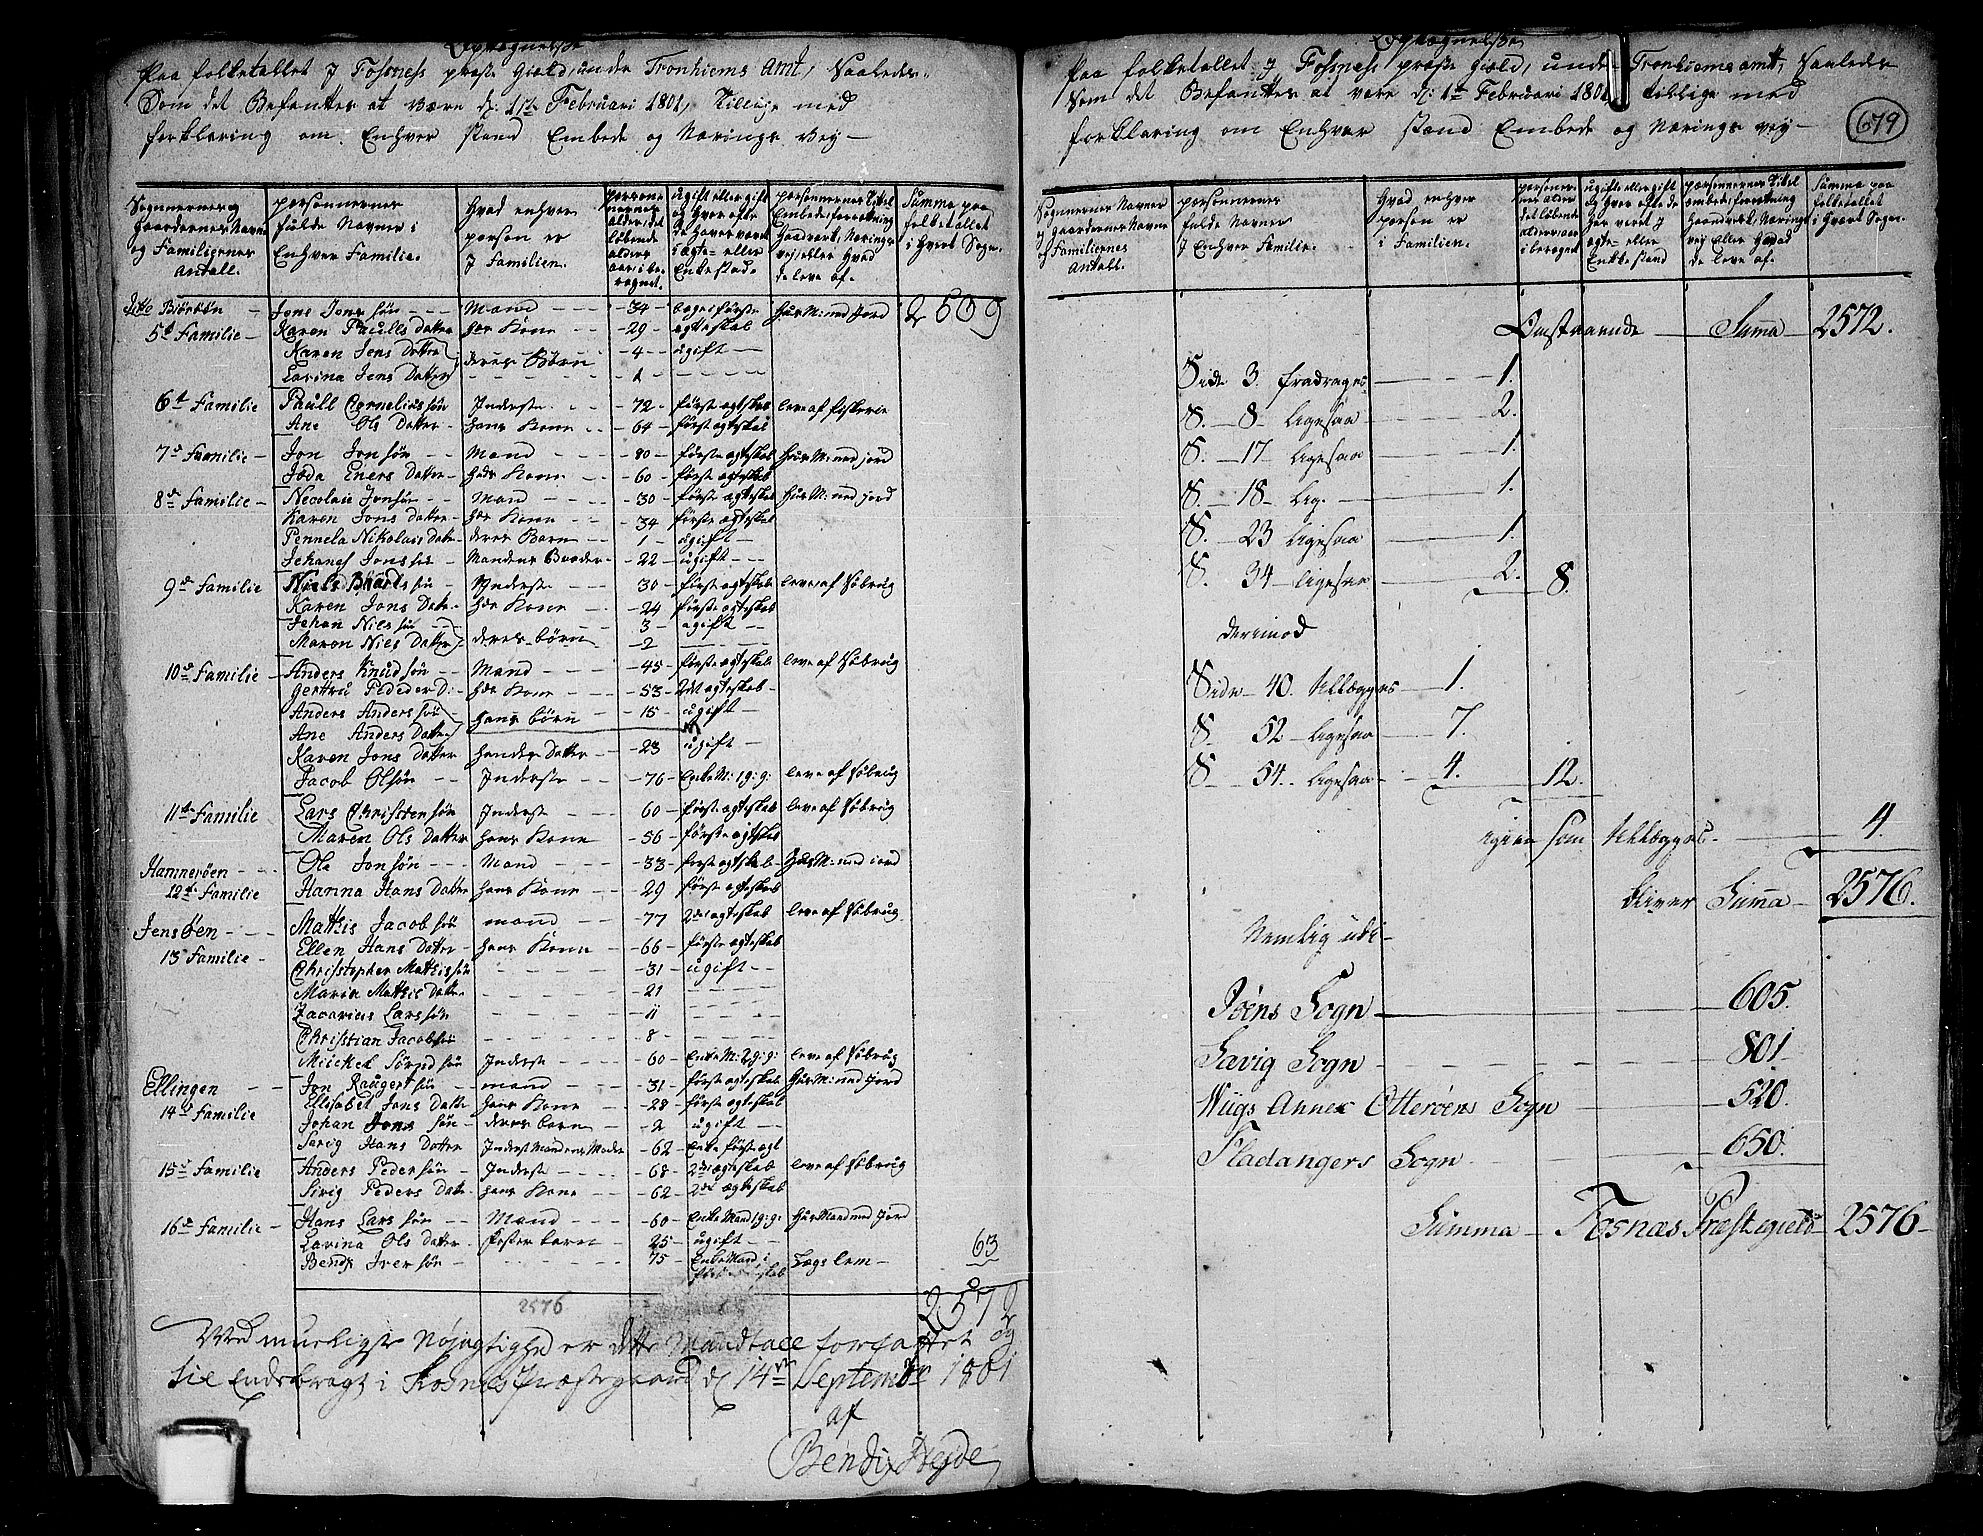 Optegnelse
Paa folketallet J Fosness præste Gield, under Tronhiems Amt, Saaledes
Som det Befantes at være d: 1ste Februari 1801, Tillige med
forklaring om Enhver stand Embede og Nærings Vey
Sognernes og Gaardernes Navne og Familiernes Antall.
personernes fulde Navne i Enhver Familie.
Hvad enhver person er J Familien.
personernes alder, det løbende alders aar iberegnet.
ugift eller gift og hvor ofte de haver været i Ægte- eller Enkestad.
personernes Titel Embede, forretning Haandverk, Nærings vej, eller Hvad de leve af.
Summa paa folketallet i hvert Sogn.
ditto Biørøen - Jons Jons søn - Mand - 34 - begge første Huus M: med Jord 2509
5te Familie - Karen Paulls Datter hs Kone - 29 - ægteskab
Karen Jens Datter deres Børn - 4 - ugift
Lavina Jens Datter - 1
6te Familie Paull Cornelius søn Inderste - 72 - første ægteskab leve af fiskerie
Ane Ols Datter - hans Kone - 64 - første ægteskab
7de Familie - Jon Jonsøn - Mand - 80 - første ægteskab Huus M: med jord
Joda Eners Datter - hs Kone - 60 - første ægteskab
8de Familie - Necolaie Jonsøn - Mand - 30 - første ægteskab Huus M: med jord
Karen Jons Datter - hs Kone - 34 - første ægteskab
Pennela Nikolais Datter - deres Barn - 1 - ugift
Johanes Jonsøn - Mandens Brooder - 22 - ugift
9de Familie Niels Bårdsøn - Inderste - 30 - første ægteskab leve af Søbrug
Karen Jons Datter - hs Kone - 24 - første ægteskab
Johan Nils søn - 3 - ugift
Maron Niels Datter deres børn - 2
10de Familie - Anders Knudsøn - Mand - 45 - første ægteskab leve af Søbrug
Gertru Peders D: hs Kone - 53 - 2det ægteskab
Anders Anders søn - hans børn - 15 - ugift
Ane Anders Datter
Karen Jons Datter hendes Datter - 23 - ugift
Jacob Olsøn - Inderste - 76 - Enke M: 1 g: g: leve af Søbrug
11te Familie - Lars Christensøn Inderste - 60 - første ægteskab leve af Søbrug
Maren Ols Datter hans Kone - 56 - første ægteskab
Hamnerøen - Ole Jonsøn - Mand - 33 - første ægteskab - Huus M: med jord
12te Familie Hanna Hans Datter hans Kone - 29 - første ægteskab
Jensøen - Mathis Jacob søn mand - 77 - 2det ægteskab leve af Søbrug
13de Familie - Ellen Hans Datter - hans Kone - 66 - første ægteskab
Christopher Mathis søn - 31 - ugift
Maria Mathis Datter - 21
Zacarias Lars søn - 11
Christian Jacobsøn - 8
Mickel Siurd søn Inderste - 60 - Enke M: 2 g: g: leve af Søbrug
Ellingen - Jon Raugert søn - mand - 31 - første ægteskab Huus M: med Jord
14de Familie Ellisabet Jons Datter hans Kone - 28 - første ægteskab
Johan Jons søn - deres barn - 2 - ugift
Sivig Hans Datter Inderst Mandens Moder - 62 - enke først ægt
15de Familie - Anders Peder søn - Inderste - 68 - 2det ægteskab leve af Søbrug
Sirig Peders Datter hans Kone - 62 - 2det ægteskab
16de Familie - Hans Lars søn - Mand - 60 - Enke Mand 1 g: g: Huus Mand med Jord
Lavina Ols Datter - foster barn - 25 - ugift
Bendix Iver søn - 75 Enke Mand i første ægteskab Lægs lem - 63
2576
2572
Med mueligste Nøjagtighed er dette Mandtall forfattet og
til Endebragt i Fosnes Præstegaard d 14de September 1801
af
Bendix Heyde
Optegnelse
Paa folketallet J Fosness præste Gield, under Tronhiems amt, Saaledes
Som det Befantes at være d: 1te Februari 1801 tillige med
forklaring om Enhver stand Embede og Nærings vej
679
Sognernes Navne og Gaardernes Navne og Familiernes Antall.
personernes fulde Navne J Enhver Familie.
Hvad enhver person er i Familien.
personernes alder det løbende alders aar iberegnet
ugift eller gift og hvor ofte de har været J ægte- eller Enkkestand
personernes Titel embede, forretning Haandverk, Nærings vej eller Hvad de leve af.
Summa paa folketallet i Hvert Sogn.
Omstaaende - Suma 2572.
Side 3. fradrages - 1.
S. - 8 - ligesaa - 2.
S. - 17 - ligesaa - 1.
S. - 18 - lig. - 1.
S. - 23 ligesaa - 1.
S. 34 - ligesaa - 2. 8.
derimod
Side - 40. tillægges - 1.
S 52 - ligesaa - 7.
S 54 - ligesaa - 4. 12.
igien som tillægges. - 4.
bliver Summa - 2576.
Nemlig udi -
Jøens Sogn - 605.
Savig Sogn - 801
Wiigs Annex Otterøens Sogn - 520
Fladangers Sogn - 650.
Summa - Fosnæs Præstegield - 2576 -